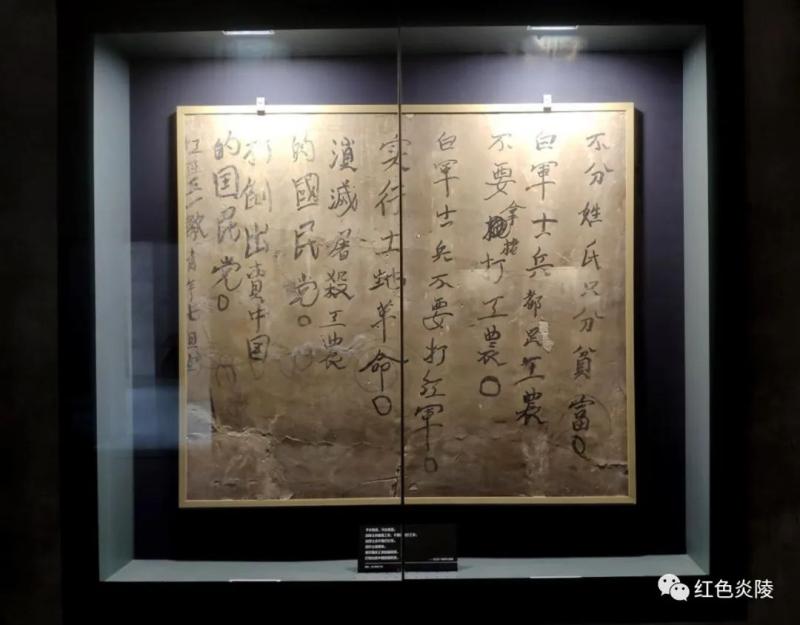 不分姓氏只分貧富。
白軍士兵都是工農
不要拿槍打工農。
白軍士兵不要打紅軍。
实行土地革命。
消滅屠殺工農
的國民党。
打倒出賣中国
的国民党。
红色炎陵